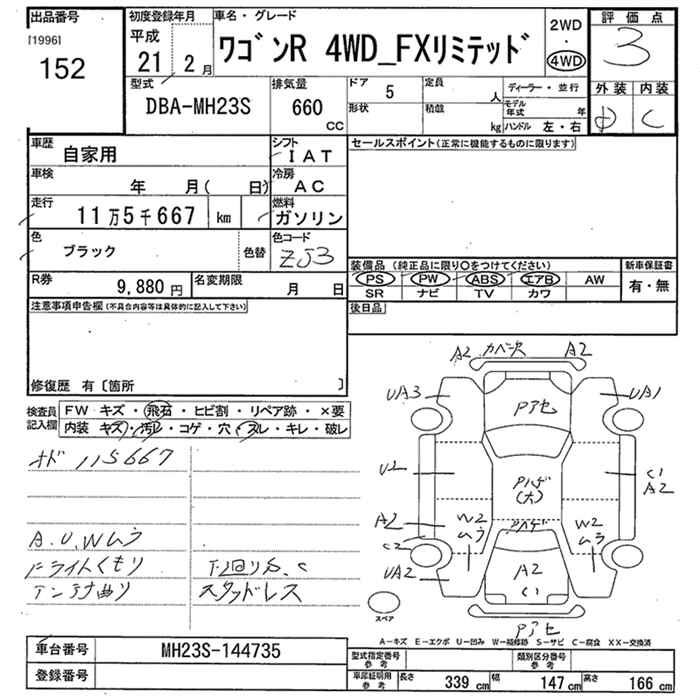 出品番号 初度登録年月 車名・グレード 評価点
[1996] 平成
152 21年 2月 ワゴンR 4WD_FXリミテッド 2WD・4WD 3
型式 排気量 ドア 5 定員 人 ディーラー・並行 外装 内装
DBA-MH23S 660 CC 形状 積載 kg モデル年式 年 C
ハンドル 左・右
車歴 自家用 シフト IAT セールスポイント(正常に機能するものに限ります)
車検 年 月( 日) 冷房 AC
走行 11万5千667 km 燃料 ガソリン
色 ブラック 色替 色コード ZJ3
装備品(純正品に限り○をつけてください) 新車保証書
R券 9,880円 名変期限 月 日 PS PW ABS エアB AW 有・無
SR ナビ TV カワ
注意事項申告欄(不具合内容等は具体的に記入して下さい) 後日品
修復歴 有〔箇所 〕
検査員記入欄 FW キズ・飛石・ヒビ割・リペア跡・×要
内装 キズ・汚レ・コゲ・穴・スレ・キレ・破レ
A2 カバー欠 A2
UA3 Pアセ UA1
オド 115667
U2 Pハゲ(大) C1 A2
A2 W2ムラ Pハゲ W2ムラ
A.U.Wムラ
C2
ドライトくもり 下回りS.C
UA2 A2 C1
アンテナ曲り スタッドレス
スペア
Pアセ
A-キズ E-エクボ U-凹み W-補修跡 S-サビ C-腐食 XX-交換済
車台番号 MH23S-144735 型式指定番号 参考 類別区分番号 参考
登録番号 車庫証明用 参考 長さ 339 cm 幅 147 cm 高さ 166 cm